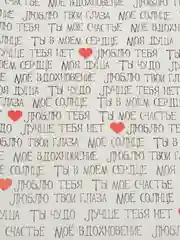 МОЁ ВДОХНОВЕНИЕ ЛЮБЛЮ
ЛЮБЛЮ ТВОИ ГЛАЗА МОЕ СОЛНЦЕ
МОЕ СЧАСТЬЕ ТЫ В МОЕМ
ЛУЧШЕ ТЕБЯ НЕТ МОЕ
МОЕМ СЕРДЦЕ МОЯ ДУША
МОЕ ВДОХНОВЕНИЕ ЛЮБЛЮ ТЕБЯ
ДУША ЛЮБЛЮ ТВОИ ГЛАЗА
МОЕ СОЛНЦЕ ТЫ В МОЕМ
ТЫ ЧУДО ЛУЧШЕ ТЕБЯ
ЛУЧШЕ ТЕБЯ НЕТ МОЕ
ЛЮБЛЮ ТВОИ ГЛАЗА МОЕ
МОЕ ВДОХНОВЕНИЕ ЛЮБЛЮ
ТЫ В МОЕМ СЕРДЦЕ
ЛЮБЛЮ ТЕБЯ МОЕ СЧАСТЬЕ
ЛЮБЛЮ ТВОИ ГЛАЗА МОЕ СОЛНЦЕ
ДУША ТЫ ЧУДО ЛУЧШЕ ТЕБЯ НЕТ
СЧАСТЬЕ МОЕ ВДОХНОВЕНИЕ